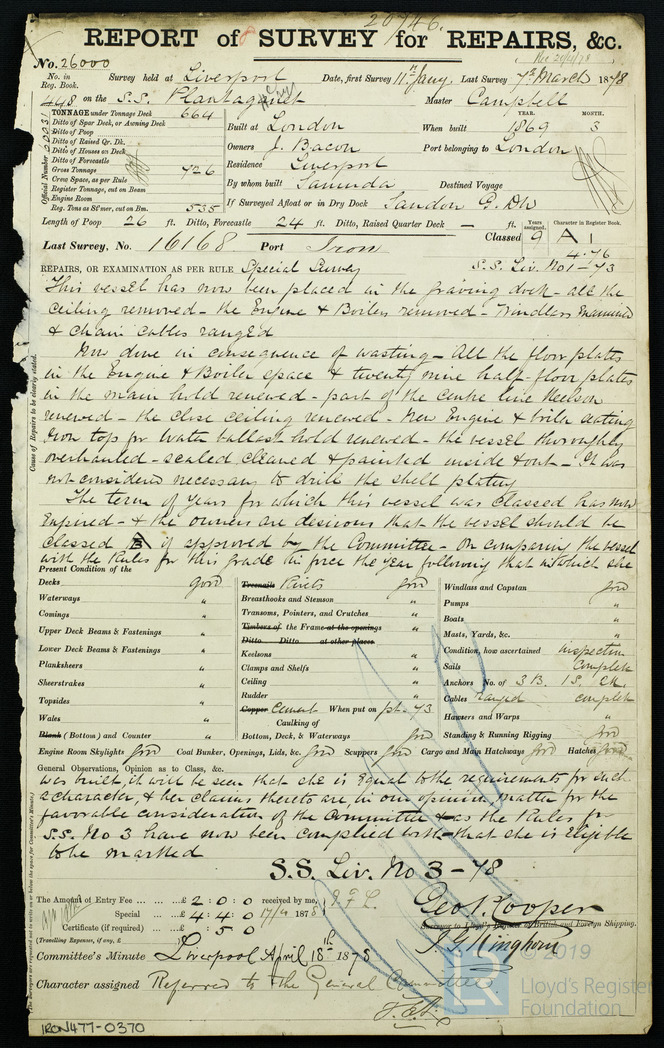 20746.
REPORT of SURVEY for REPAIRS, &c.
8
Rec 20/4/78
No. 26000
No. in Reg. Book. Survey held at Liverpool Date, first Survey 11th Jany. Last Survey 7th March 1878
448 on the S.S. Plantagenet Master Campbell
TONNAGE under Tonnage Deck 664
Ditto of Spar Deck, or Awning Deck
Ditto of Poop
Ditto of Raised Qr. Dk.
Ditto of Houses on Deck
Ditto of Forecastle
Gross Tonnage 726
Crew Space, as per Rule
Register Tonnage, cut on Beam
Engine Room
Reg. Tons as St'mer, cut on Bm. 535
Official Number
YEAR. MONTH.
Built at London When built 1869 3
Owners J. Bacon Port belonging to London
Residence Liverpool
By whom built Samuda Destined Voyage
If Surveyed Afloat or in Dry Dock Sandon G. Dk
Length of Poop 26 ft. Ditto, Forecastle 24 ft. Ditto, Raised Quarter Deck – ft.
Years assigned. Character in Register Book.
Classed 9 A 1
4.76
Last Survey, No. 16168 Port Iron
S.S. Liv. No 1 – 73
REPAIRS, OR EXAMINATION AS PER RULE Special Survey
This vessel has now been placed in the graving dock – all the
ceiling removed – the Engine & Boilers removed – Windlass Examined
& Chain Cables ranged
Now done in consequence of wasting – All the floor plates
in the Engine & Boiler space & twenty nine half-floor plates
in the main hold renewed – part of the centre line Keelson
renewed – the close ceiling renewed – New Engine & boiler seating
Iron top for Water ballast hold renewed – the vessel thoroughly
overhauled – scaled cleaned & painted inside & out – It was
not considered necessary to drill the shell plating
The term of years for which this vessel was Classed has now
Expired – & the owners are desirous that the vessel should be
Classed A if approved by the Committee – On comparing the vessel
with the Rules for this grade in force the year following that in which she
Cause of Repairs to be clearly stated.
Present Condition of the
Decks good
Waterways "
Comings "
Upper Deck Beams & Fastenings "
Lower Deck Beams & Fastenings "
Planksheers "
Sheerstrakes "
Topsides "
Wales "
Plank (Bottom) and Counter "
Treenails Rivets good
Breasthooks and Stemson "
Transoms, Pointers, and Crutches "
Timbers of the Frame at the openings "
Ditto Ditto at other places
Keelsons "
Clamps and Shelfs "
Ceiling "
Rudder "
Copper Cement When put on pt. 73
Caulking of
Bottom, Deck, & Waterways good
Windlass and Capstan good
Pumps "
Boats "
Masts, Yards, &c. "
Condition, how ascertained inspection
Sails Complete
Anchors No. of 3 B. 1 S.
Cables ranged complete
Hawsers and Warps "
Standing & Running Rigging good
Engine Room Skylights good Coal Bunker, Openings, Lids, &c. good Scuppers good Cargo and Main Hatchways good Hatches good
General Observations, Opinion as to Class, &c.
was built, it will be seen that she is Equal to the requirements for such
a character, & her claims thereto are, in our opinion, matter for the
favorable consideration of the Committee & as the Rules for
S.S. No 3 have now been complied with – that she is Eligible
to be marked
S.S. Liv. No 3 – 78
The Amount of Entry Fee £ 2 : 0 : 0 received by me,
Special £ 4 : 4 : 0 17/4 1878
Certificate (if required) £ : 5 0
(Travelling Expenses, if any, £ )
Geo. Cooper
Surveyor to Lloyd's Register of British and Foreign Shipping.
Committee's Minute Liverpool April 18th 1878
Character assigned Referred to the General Committee
© 2019
LR
Lloyd's Register
Foundation
IRON477-0370